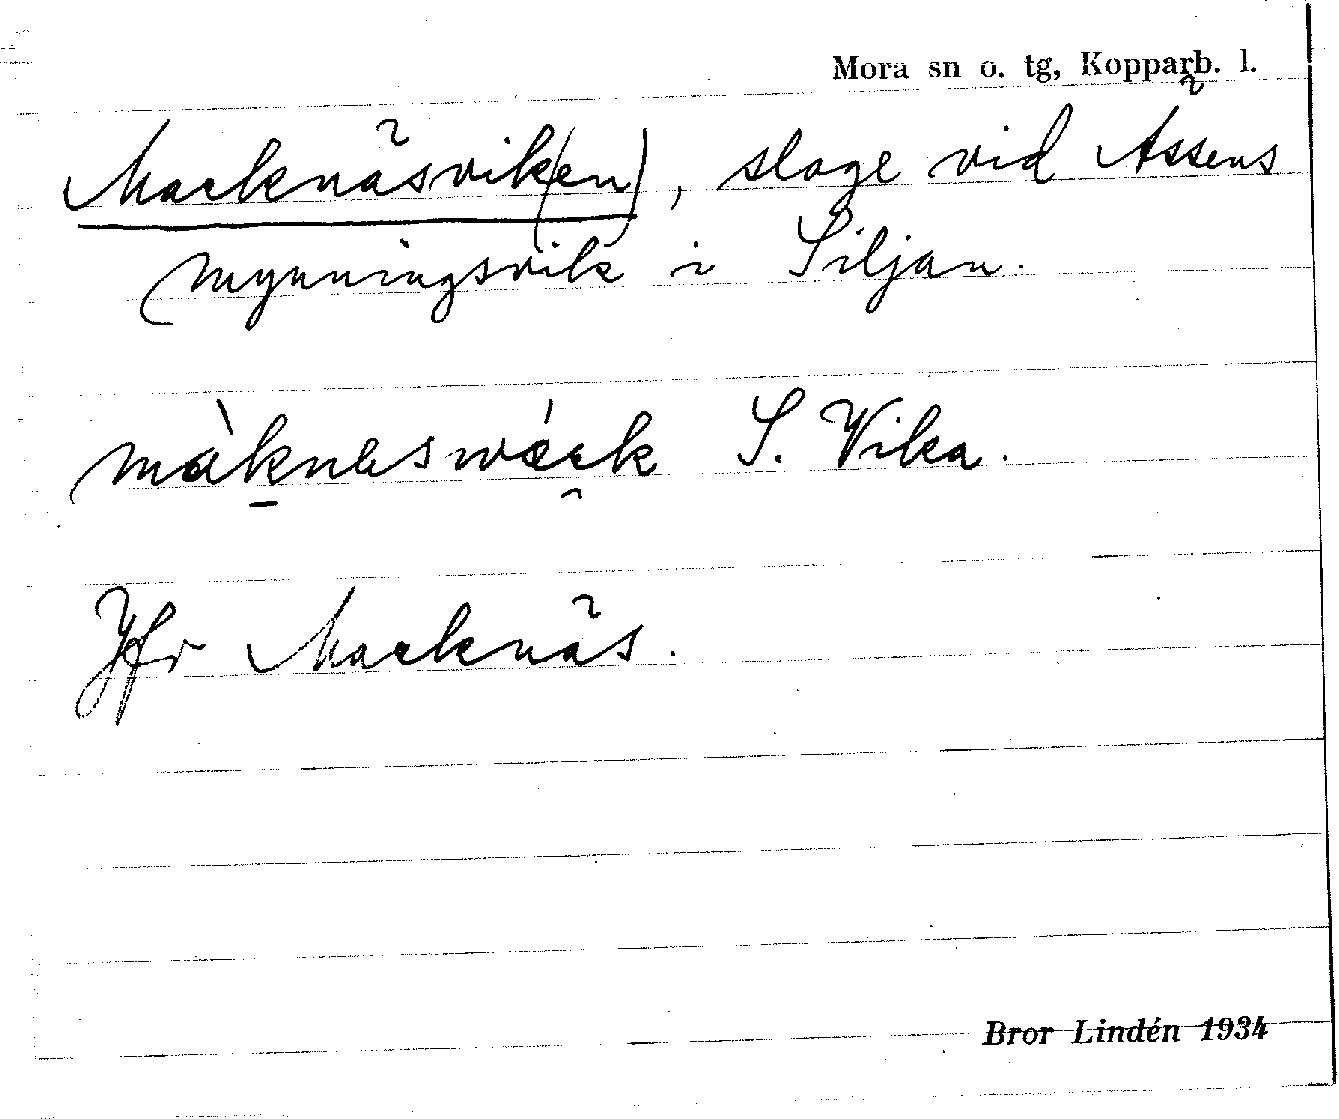 Mora sn o. tg, Kopparb. l.
Macknäsvik(en), sloge vid Åssens
mynningsvik i Siljan.
màknäswáek S. Vika.
Jfr Macknäs.
Bror Lindén 1934